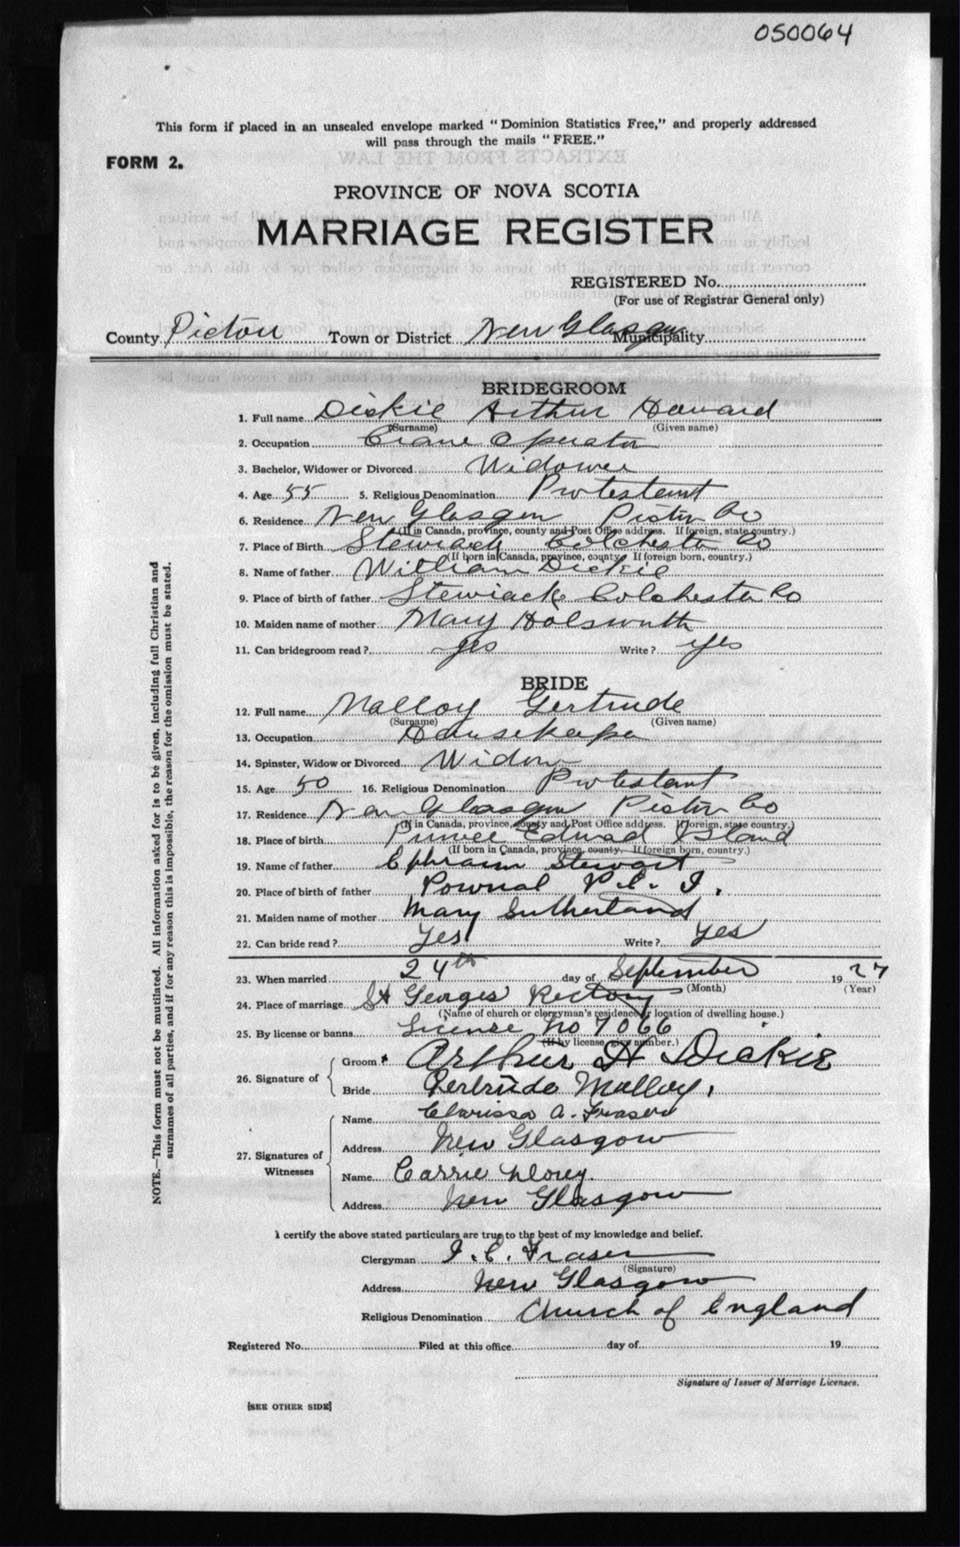 050064
This form if placed in an unsealed envelope marked "Dominion Statistics Free," and properly addressed
will pass through the mails "FREE."
FORM 2.
PROVINCE OF NOVA SCOTIA
MARRIAGE REGISTER
REGISTERED No.
(For use of Registrar General only)
County Pictou Town or District New Glasgow Municipality
BRIDEGROOM
1. Full name Dickie Arthur Howard
(Surname) (Given name)
2. Occupation Crane Operator
3. Bachelor, Widower or Divorced Widower
4. Age 55 5. Religious Denomination Protestant
6. Residence New Glasgow Pictou Co
(If in Canada, province, county and Post Office address. If foreign, state country.)
7. Place of Birth Stewiack Colchester Co
(If born in Canada, province, county. If foreign born, country.)
8. Name of father William Dickie
9. Place of birth of father Stewiack Colchester Co
10. Maiden name of mother Mary Holsworth
11. Can bridegroom read? yes Write? yes
BRIDE
12. Full name Malloy Gertrude
(Surname) (Given name)
13. Occupation Housekeeper
14. Spinster, Widow or Divorced Widow
15. Age 50 16. Religious Denomination Protestant
17. Residence New Glasgow Pictou Co
(If in Canada, province, county and Post Office address. If foreign, state country.)
18. Place of birth Prince Edward Island
(If born in Canada, province, county. If foreign born, country.)
19. Name of father Ephraim Stewart
20. Place of birth of father Pownal P.E.I.
21. Maiden name of mother Mary Sutherland
22. Can bride read? Yes Write? Yes
23. When married 24th day of September 1927
(Month) (Year)
24. Place of marriage St Georges Rectory
(Name of church or clergyman's residence or location of dwelling house.)
25. By license or banns License No 7066
(If by license give number.)
26. Signature of Groom Arthur H Dickie
Bride Gertrude Malloy.
27. Signatures of Witnesses
Name Clarissa A. Fraser
Address New Glasgow
Name Carrie
Address New Glasgow
I certify the above stated particulars are true to the best of my knowledge and belief.
Clergyman Fraser
(Signature)
Address New Glasgow
Religious Denomination Church of England
Registered No. Filed at this office day of 19
Signature of Issuer of Marriage Licenses.
[SEE OTHER SIDE]
NOTE.—This form must not be mutilated. All information asked for is to be given, including full Christian and
surnames of all parties, and if for any reason this is impossible, the reason for the omission must be stated.